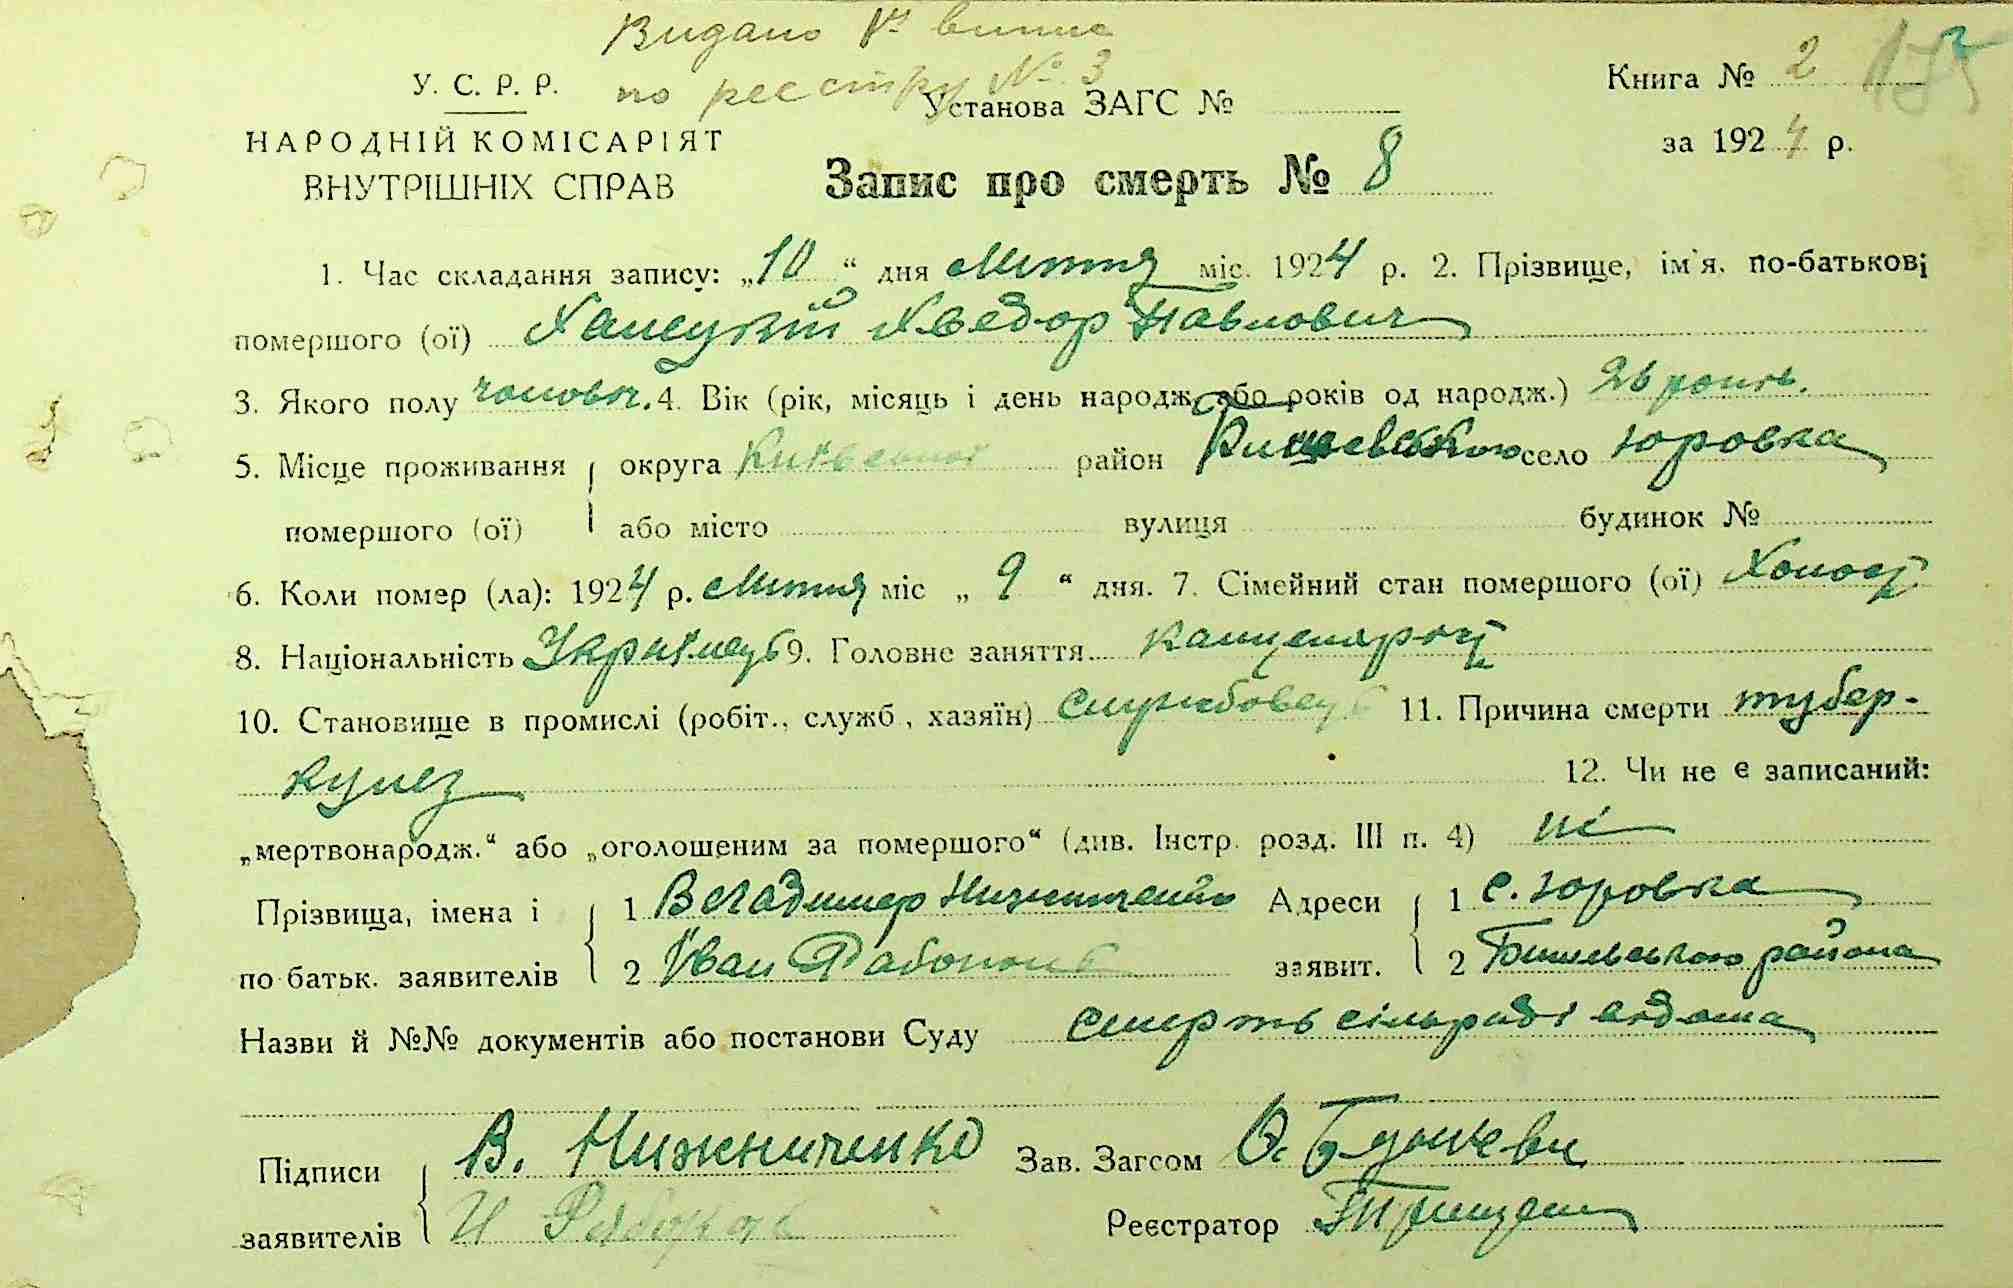 Видано
У. С. Р. Р.
по реєстру № 3
Установа ЗАГС №
Книга № 2
НАРОДНІЙ КОМІСАРІЯТ
за 1924 р.
ВНУТРІШНІХ СПРАВ
Запис про смерть № 8
1. Час складання запису: „10“ дня Липня міс. 1924 р. 2. Прізвище, ім'я, по-батькові
помершого (ої) Халецкій Хведор Павлович
3. Якого полу чоловіч. 4. Вік (рік, місяць і день народж. або років од народж.) 26 років.
5. Місце проживання округа Київської район село Юровка
помершого (ої) або місто вулиця будинок №
6. Коли помер (ла): 1924 р. Липня міс „9“ дня. 7. Сімейний стан помершого (ої) Холост
8. Національність Українець 9. Головне заняття канцелярист
10. Становище в промислі (робіт., служб., хазяїн) службовець 11. Причина смерти тубер-
кулез 12. Чи не є записаний:
„мертвонародж.“ або „оголошеним за помершого“ (див. Інстр. розд. III п. 4) ні
Прізвища, імена і 1 Владимер Нижниченко Адреси 1 с. Юровка
по батьк. заявителів 2 Іван заявит. 2 Бишевського района
Назви й №№ документів або постанови Суду смерть сільраді відома
Підписи В. Нижниченко Зав. Загсом
заявителів И Реєстратор